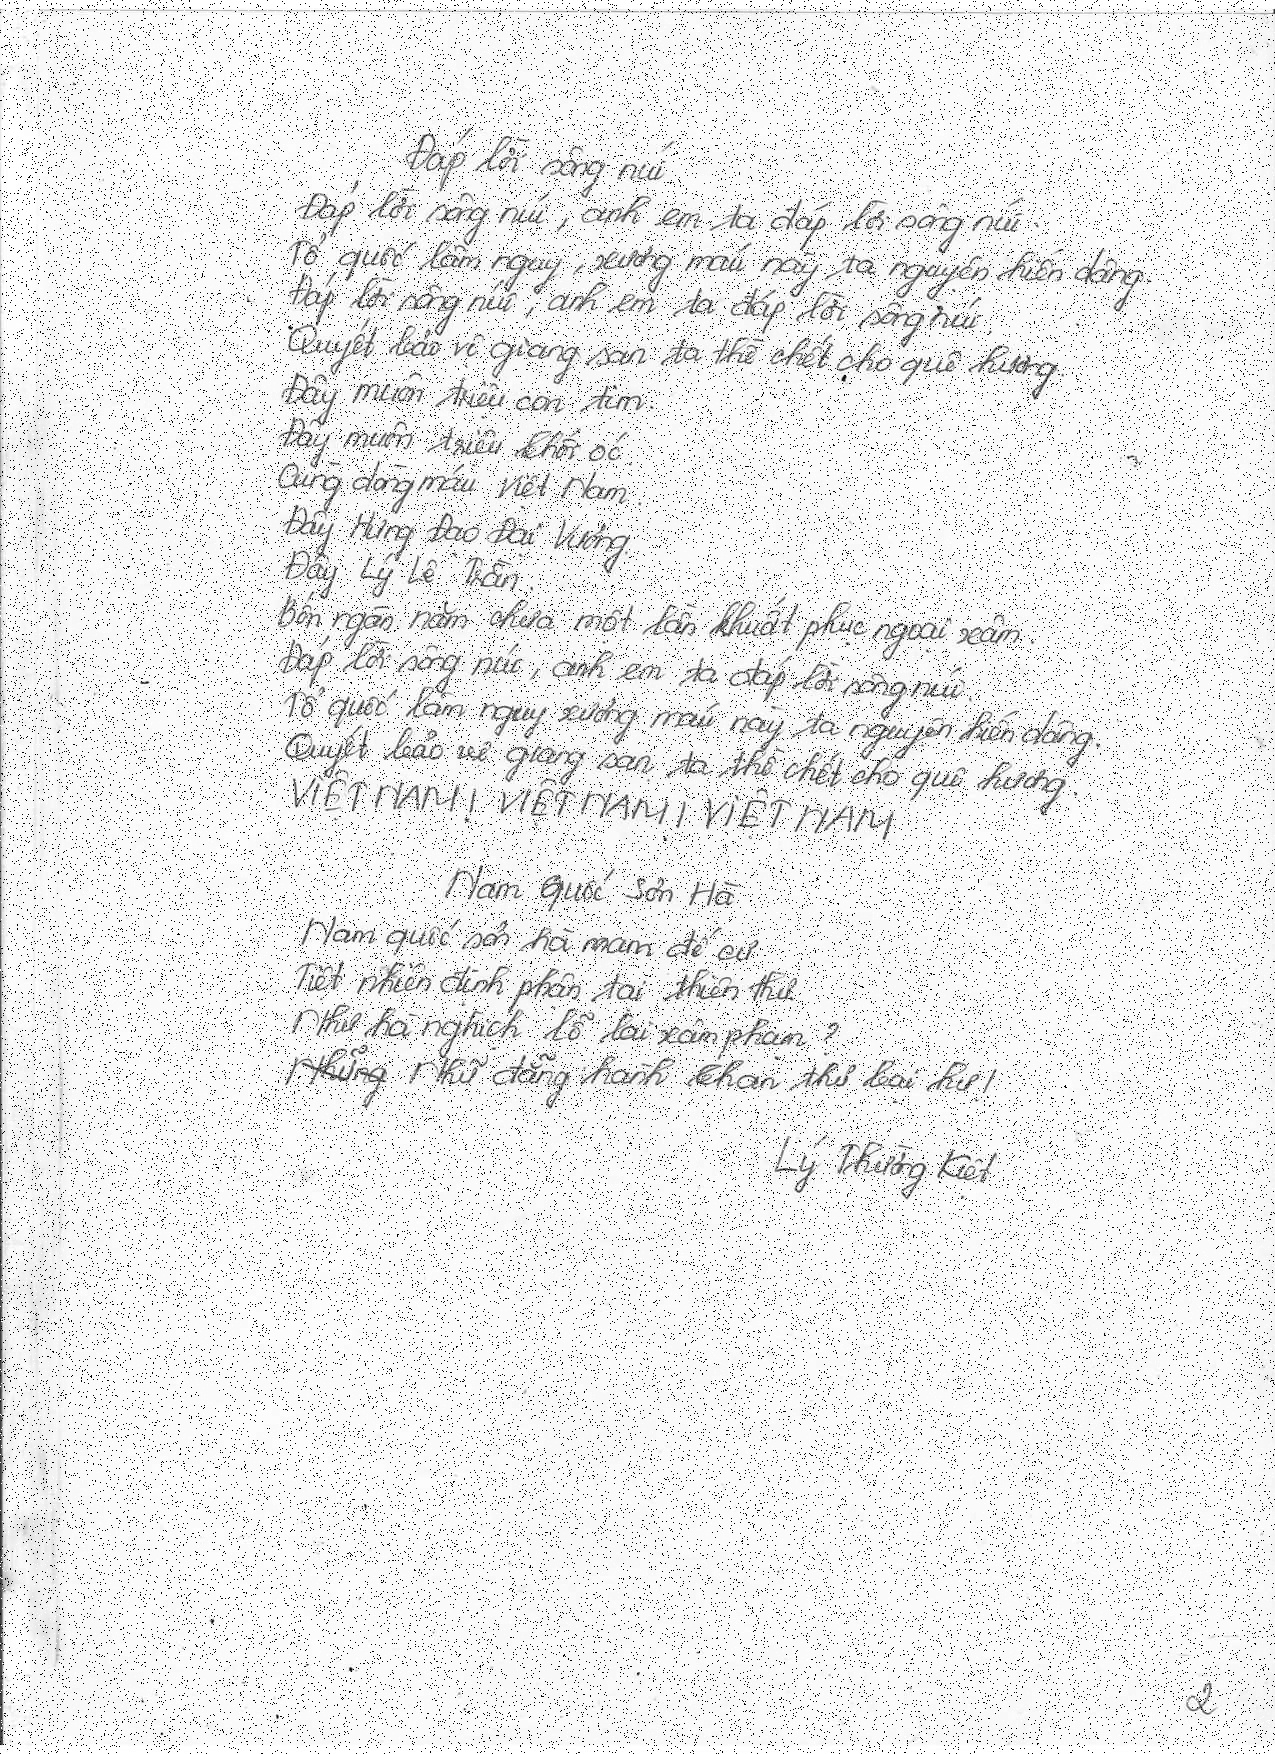 Đáp lời sông núi
Đáp lời sông núi, anh em ta đáp lời sông núi.
Tổ quốc lâm nguy, xương máu này ta nguyện hiến dâng.
Đáp lời sông núi, anh em ta đáp lời sông núi.
Quyết bảo vệ giang san ta thề chết cho quê hương.
Đây muôn triệu con tim.
Đây muôn triệu khối óc
Cùng dòng máu Việt Nam.
Đây Hưng Đạo Đại Vương
Đây Lý Lê Trần.
Bốn ngàn năm chưa một lần khuất phục ngoại xâm.
Đáp lời sông núi, anh em ta đáp lời sông núi.
Tổ quốc lâm nguy xương máu này ta nguyện hiến dâng.
Quyết bảo vệ giang san ta thề chết cho quê hương.
VIỆT NAM! VIỆT NAM! VIỆT NAM
Nam Quốc Sơn Hà
Nam quốc sơn hà mam đế cư
Tiệt nhiên định phận tại thiên thư
Như hà nghịch lỗ lai xâm phạm?
Những Nhữ đẳng hành khan thủ bại hư!
Lý Thường Kiệt
2